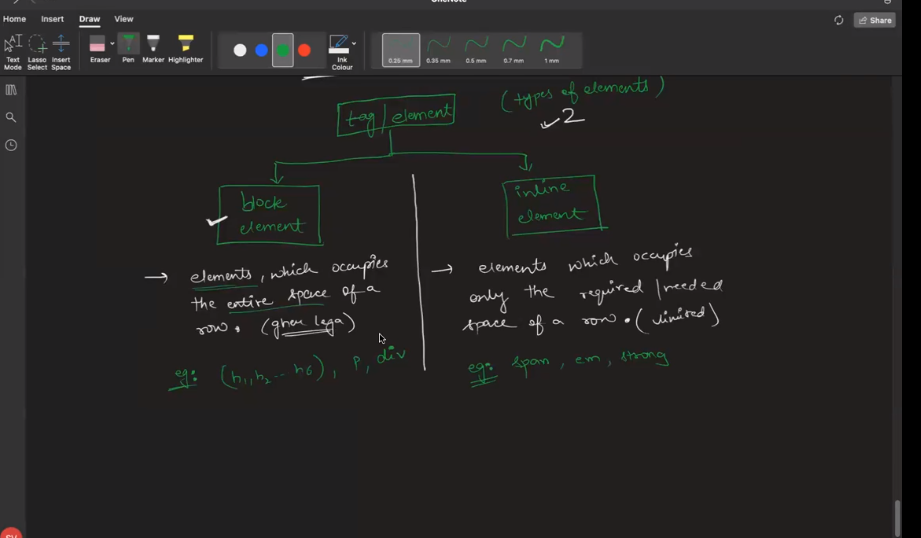 OneNote
Home Insert Draw View
Share
Text Mode
Lasso Select
Insert Space
Eraser
Pen
Marker
Highlighter
Ink Colour
0.25 mm
0.35 mm
0.5 mm
0.7 mm
1 mm
(types of elements)
2
tag/element
block element
inline element
→ elements, which occupies
the entire space of a
row. (gher lega)
eg: (h1, h2 -- h6), P, div
→ elements which occupies
only the required/needed
space of a row. (limited)
eg: span, em, strong
SV